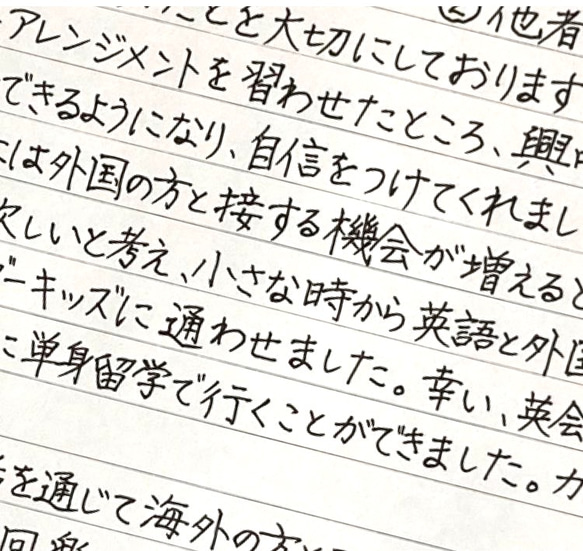 ②他者
ことを大切にしております
アレンジメントを習わせたところ、興
できるようになり、自信をつけてくれまし
は外国の方と接する機会が増えると
欠しいと考え、小さな時から英語と外国
ーキッズに通わせました。幸い、英会
に単身留学で行くことができました。カ
を通じて海外の方と
回